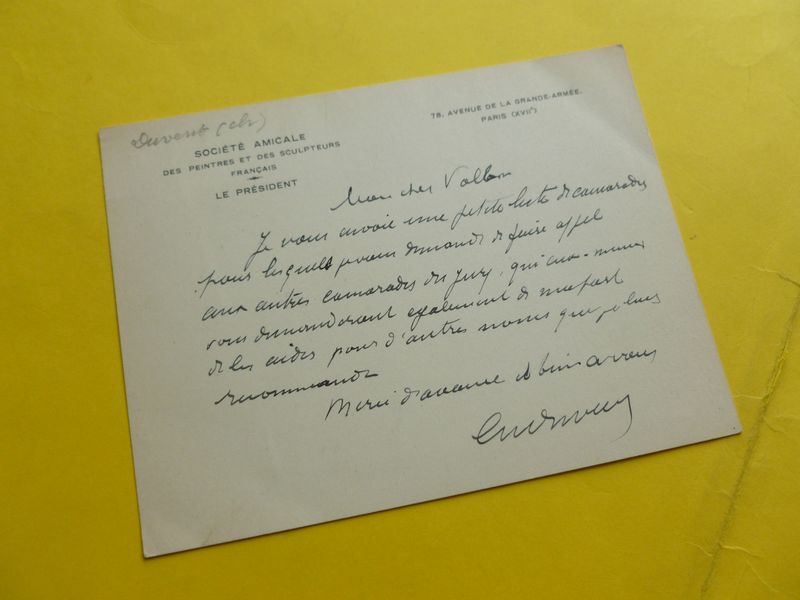 Duvent (ch)
SOCIÉTÉ AMICALE
DES PEINTRES ET DES SCULPTEURS
FRANÇAIS
LE PRÉSIDENT
78, AVENUE DE LA GRANDE-ARMÉE,
PARIS (XVIIᵉ)
Mon cher
Je vous envoie une petite liste de camarades
pour lesquels je vous demande de faire appel
aux autres camarades du jury, qui eux-mêmes
vous demanderont également de ma part
de les aider pour d'autres noms que je leur
recommande
Merci d'avance et bien à vous